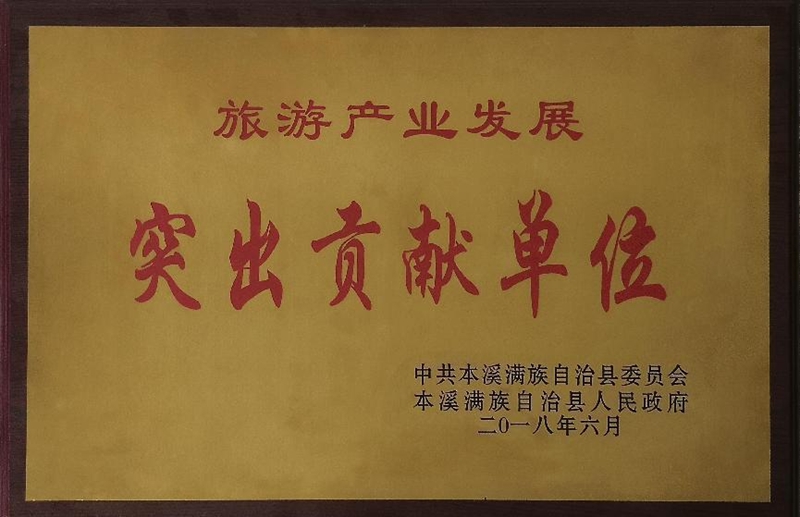 旅游产业发展
突出贡献单位
中共本溪满族自治县委员会
本溪满族自治县人民政府
二0一八年六月